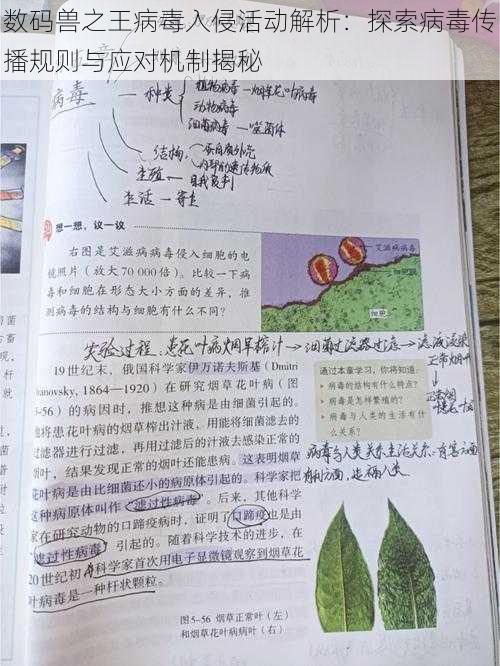 数码兽之王病毒入侵活动解析：探索病毒传
播规则与应对机制揭秘
病毒
种类
植物病毒—烟草花叶病毒
动物病毒
细菌病毒—噬菌体
结构
蛋白质外壳
内部的遗传物质
生殖—自我复制
生活—寄生
想一想，议一议
右图是艾滋病病毒侵入细胞的电
镜照片（放大70 000倍）。比较一下病
毒和细胞在形态大小方面的差异，推
测病毒的结构与细胞有什么不同？
艾滋病病毒
细胞膜
实验过程：患花叶病烟草榨汁→细菌过滤器过滤→滤液感染
正常烟叶
19世纪末，俄国科学家伊万诺夫斯基（Dmitri
Ivanovsky, 1864—1920）在研究烟草花叶病（图
5-56）的病因时，推想这种病是由细菌引起的。
他将患花叶病的烟草榨出汁液，用能将细菌滤去的
过滤器进行过滤，再用过滤后的汁液去感染正常的
烟叶，结果发现正常的烟叶还能患病。这表明烟草
花叶病是由比细菌还小的病原体引起的。科学家把
这种病原体叫作“滤过性病毒”。后来，其他科学
家在研究动物的口蹄疫病时，证明了口蹄疫也是由
滤过性病毒引起的。随着科学技术的进步，在
20世纪初，科学家首次用电子显微镜观察到烟草花
叶病毒是一种杆状颗粒。
通过本章学习，你将知道：
病毒的结构有什么特点？
病毒是怎样繁殖的？
病毒与人类的生活有什
么关系？
病毒与人类关系
图5-56 烟草正常叶（左）
和烟草花叶病病叶（右）